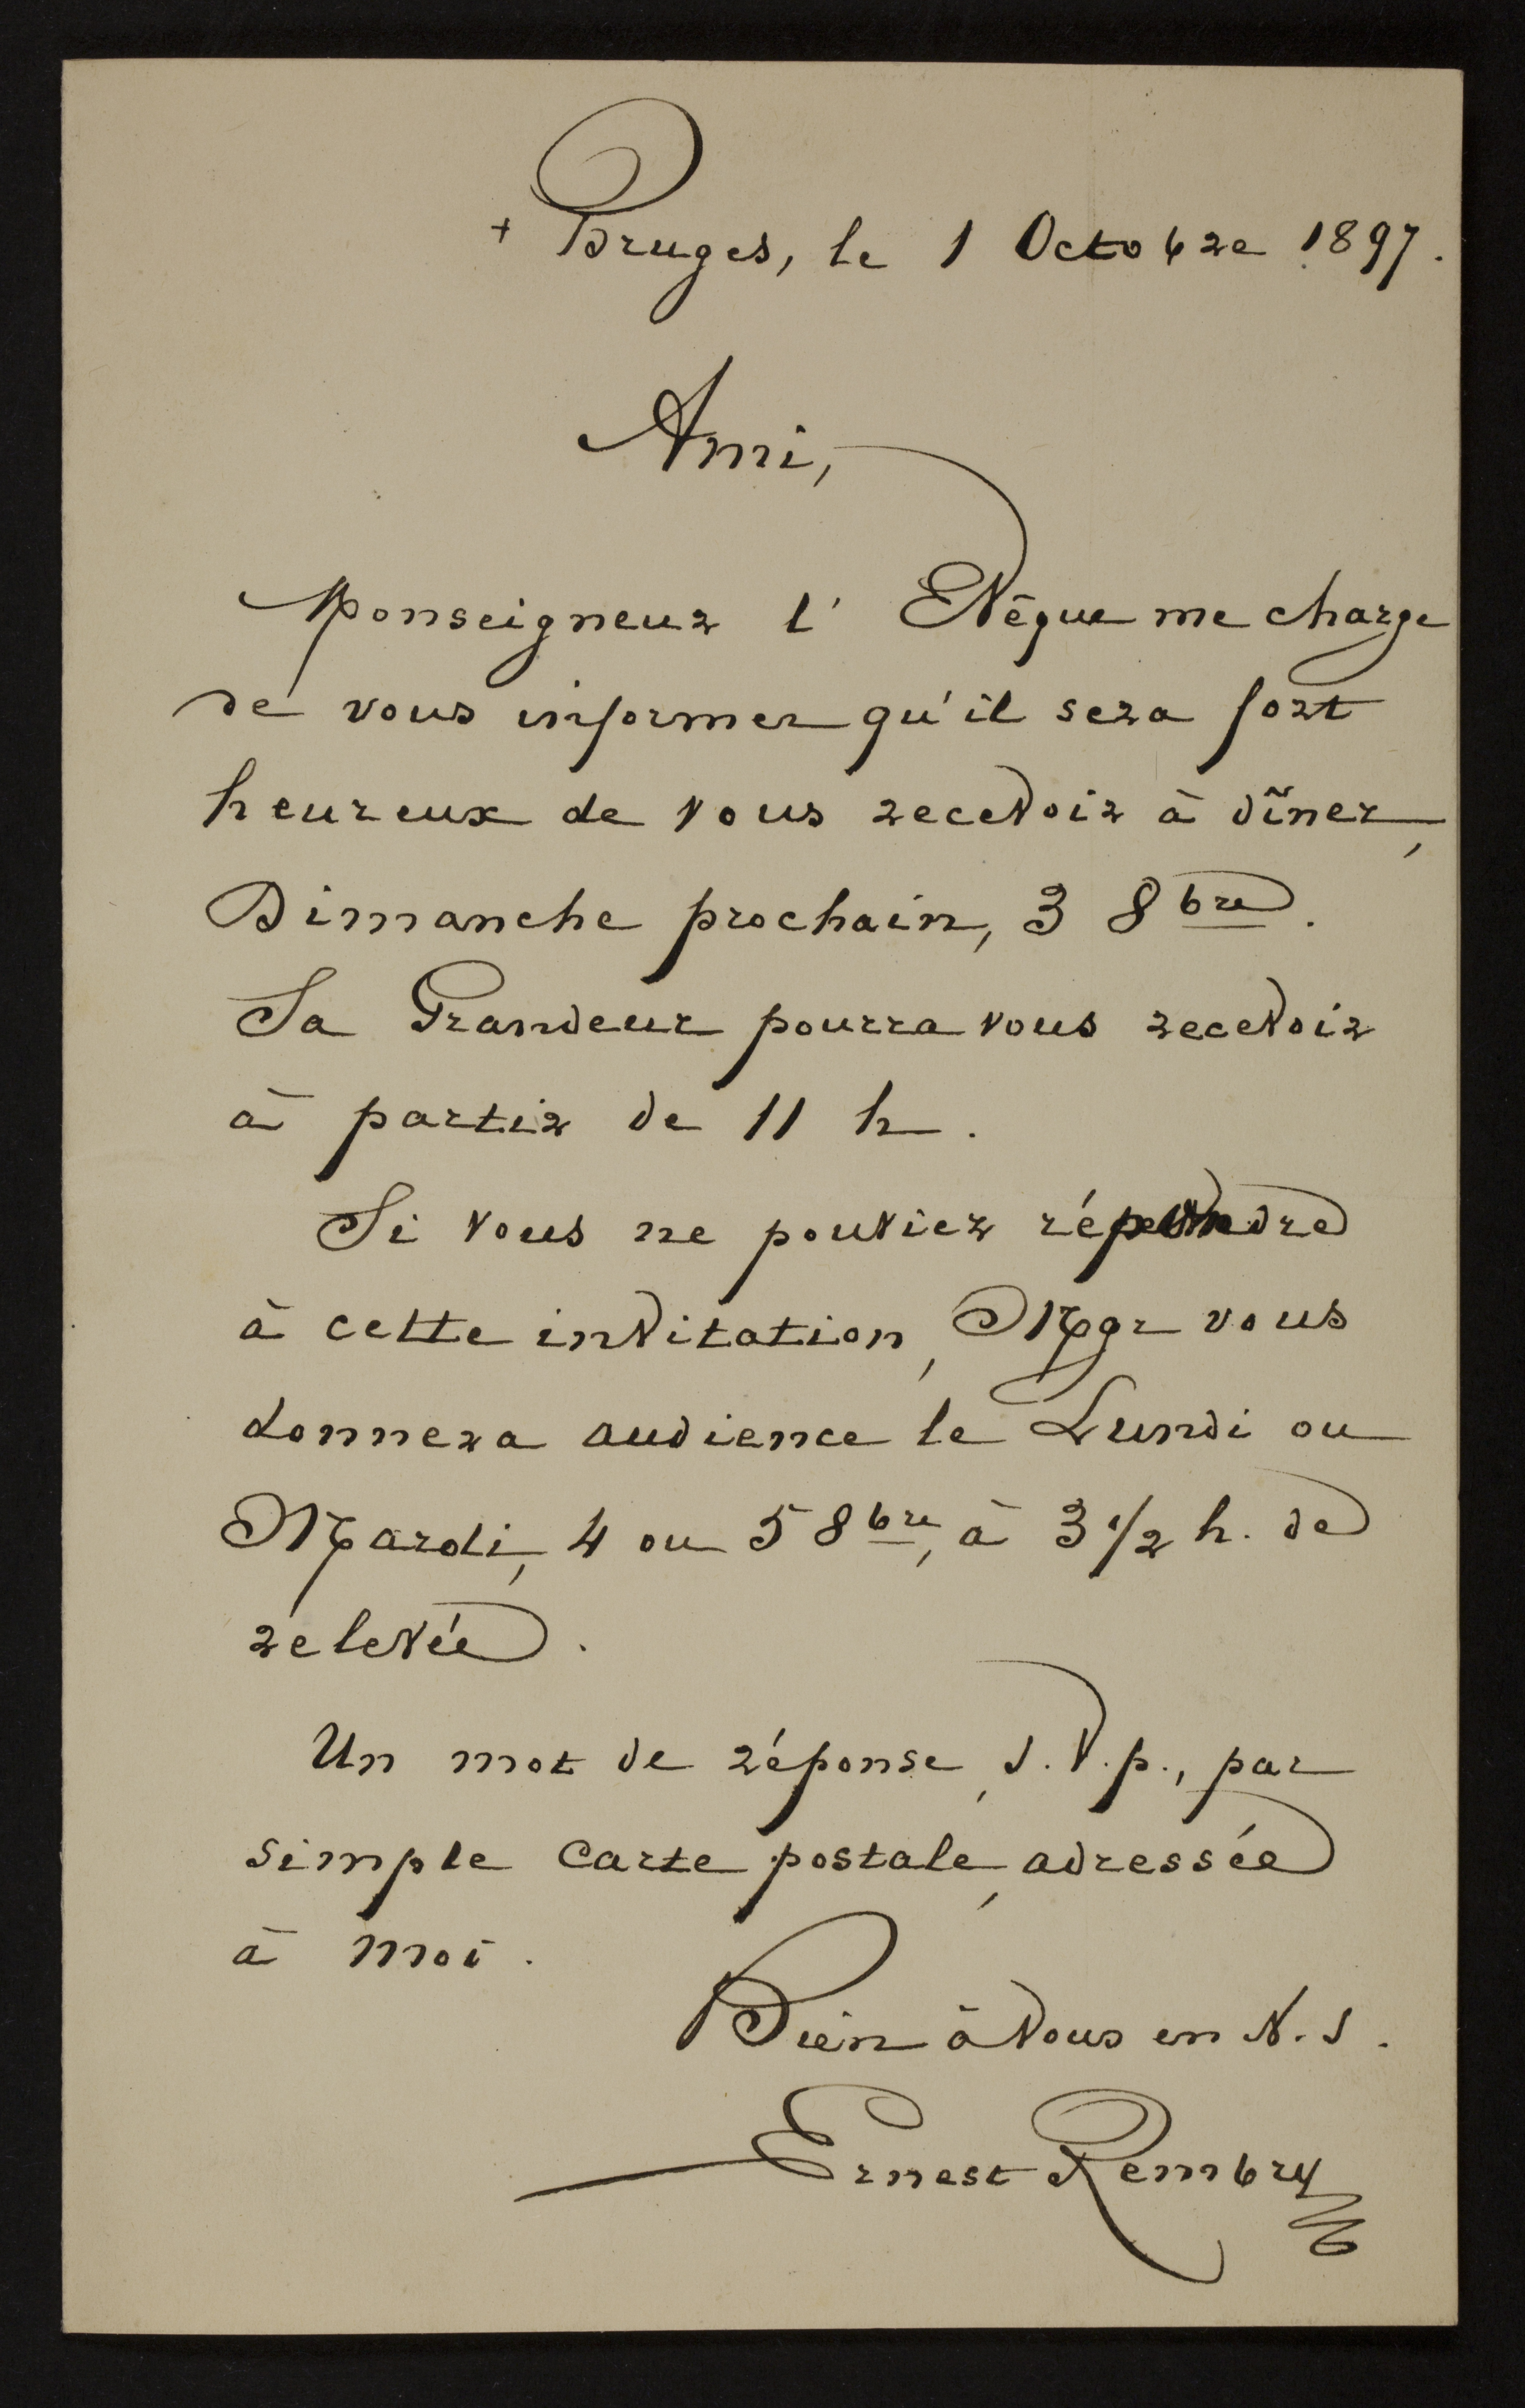 + Bruges, le 1 Octobre 1897.
Ami,
Monseigneur l'Evêque me charge
de vous informer qu'il sera fort
heureux de vous recevoir à dîner,
Dimanche prochain, 3 8bre.
Sa Grandeur pourra vous recevoir
à partir de 11 h.
Si vous ne pouviez répondre
à cette invitation, Mgr vous
donnera audience le Lundi ou
Mardi, 4 ou 5 8bre, à 3 1/2 h. de
relevée.
Un mot de réponse, s.v.p., par
simple carte postale, adressée
à moi.
Bien à Vous en N.S.
Ernest Rembry